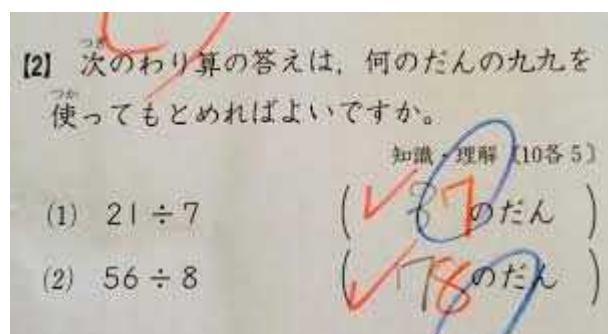 [2] 次のわり算の答えは，何のだんの九九を
使ってもとめればよいですか。
知識・理解〔10各5〕
(1) 21÷7 ( 3 7のだん )
(2) 56÷8 ( 7 8のだん )